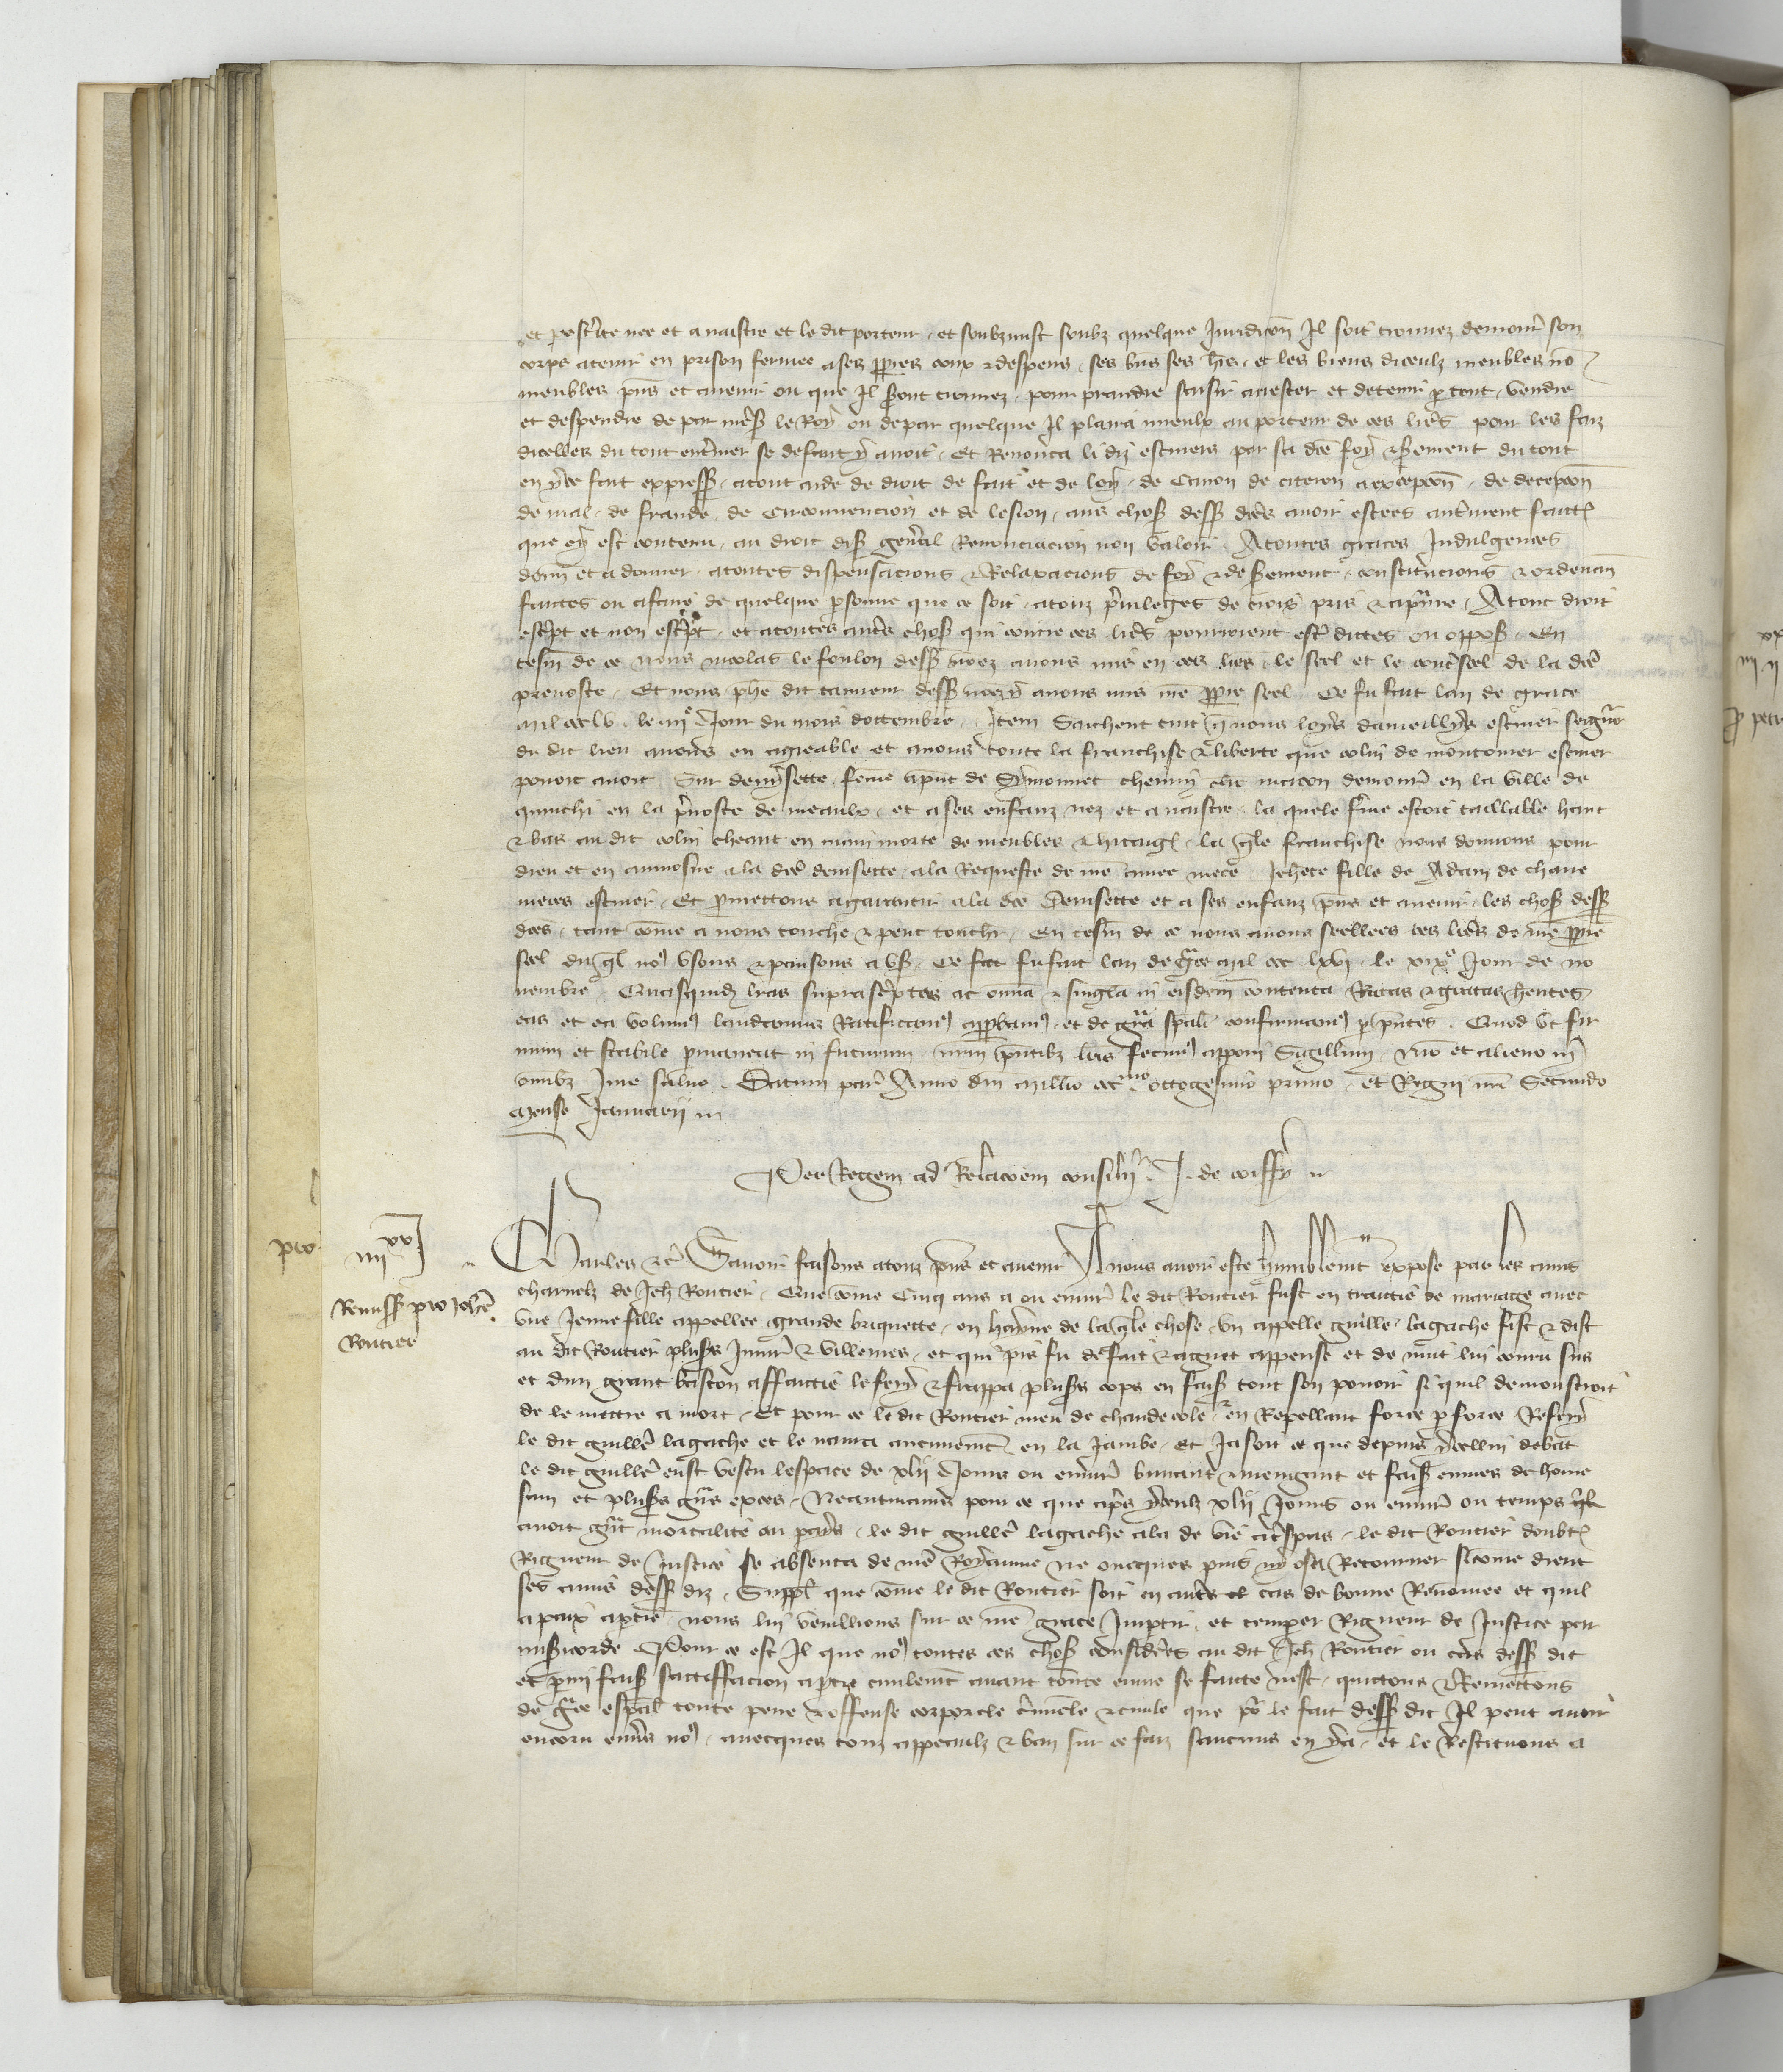 et posterite nee et a naistre et le dit porteur et soubzmist soubz quelque Juridicon Il soit trouvez demour son
corps a tenir en prison fermee a ses ppres coux & despens ses bns ses hrs et les biens diceulz meubles no
meubles pns et avenir ou que Il seront trouvez pour prandre saisir arrester et detenir p tout vendre
et despendre de par mess le Roy ou de par quelque Il plaira mieulx au porteur de ces lrēs pour les faiz
dicelles du tout entiner se defaut y avoit Et Renonca li diz escuiers par sa dce foy & serement du tout
en yce fait expresse a tout aide de droit de fait et de loy de Canon de citacion a excepcon de decepcon
de mal de fraude de Circonvencion et de lesion aus choses dess dces avoir estees autrement faictes
que cy est contenu au droit dis general Renonciacion non valoir A toutes graces Indulgences
donn et a donner a toutes dispensacions & Relaxacions de foy & de serement constitucions & ordenan
faictes ou a faire de quelque psonne que ce soit a touz privileges de crois pris & a prdre A tout droit
escript et non escript et a toutes autres choses qui contre ces lrēs pourroient estre dittes ou oppos En
tesm de ce Nous nicolas le foulon dess nomez avons mis en ces lrēs le seel et le contreseel de la dce
prevoste Et nous phē dit dess avons mis me ppre seel Ce fu fait lan de grace
mil cc lv le iiij Jour du mois dottembre Item Sachent tuit q nous loys escuier seigneur
du dit lieu avons en agreable et avons toute la franchise & liberte que colin de montomer escuier
povoit avoir Sur demisette feme a pnt de Symonnet chemin demour en la ville de
en la prevoste de meaulx et a ses enfanz nez et a naistre la quele feme estoit taillable haut
& bas au dit colin cheant en main morte de meubles & hitages la qle franchise nous donnons pour
dieu et en aumosne a la dce demisette a la Requeste de me amee niece Jehēte fille de Adam de chane
vieres escuier Et promettons a garantir a la dce Demisette et a ses enfanz pns et avenir les choses dess
dces tant come a nous touche & peut touchr En tesm de ce nous avons seellees ces lrēs de me ppre
seel du ql no usons & pansons a us Ce fu fait lan de gce mil cc lxvj le xixe Jour de no
vembre Quasquid lras suprascriptas ac omia & singula in eisdem contenta Ratas & gratas hentes
eas et ea volum laudamus Ratificam approbam et de gra spali confirmam p pntes Quod ut fir
mum et stabile pmaneat in futurum nrm pntibz lris fecim apponi Sigillum nro et alieno in
omibz Jure salvo Datum par Anno dni millio ccc mo ottogesimo primo et Regni nri Secundo
mense Januarii
Per Regem ad Relacoem consilii J. de coiffy
pro
iiij xx j
Remiss pro Johē
Routier
Charles &c Savoir faisons a touz pns et avenir A nous avoir este humblemt expose par les amis
charnelz de Jeh Routier Que come Cinq ans a ou environ le dit Routier fust en traictie de mariage avec
une Jeune fille appellee grande briquette en hayne de la qle chose un appelle guille lagache fist & dist
au dit Routier plus Injur & villenies et qui pis fu de fait & aguet appense et de nuit lui couru sus
et dun grant baston affaictie le fery & frappa plus cops en fais tout son povoir si quil demonstroit
de le mettre a mort Et pour ce le dit Routier meu de chaude cole & en Repellant force p force Refery
le dit guille lagache et le navra aucunemt en la Jambe Et Ja soit ce que depuis ycellui debat
le dit guille eust vescu lespace de xlij Jours ou environ buvant & mengant et fais euvres de home
sain et plus gns exces Neantmains pour ce que aps yceulz xlij Jours ou environ ou temps ql
avoit gnt mortalite au pays le dit guille lagache ala de vie a trespas le dit Routier doubt
Rigueur de Justice se absenta de nre Royaume ne oncques puis ny osa Retourner si come dient
ses amis dess diz Suppl que come le dit Routier soit en autres cas de bonne Renomee et quil
a paix a ptie nous lui veuillions sur ce nre grace Imptir et temper Rigueur de Justice par
misericorde Pour ce est Il que no toutes ces choses considerees au dit Jeh Routier ou cas dess dit
et pmi fais sattiffacion a ptie civilemt avant toute euvre se faicte nest quittons & Remettons
de gce especial toute peine & offense corporele criminele & civile que pr le fait dess dit Il peut avoir
encoru envs no avecques touz appeaulz & ban sur ce faiz saucuns en y a et le Restituons a